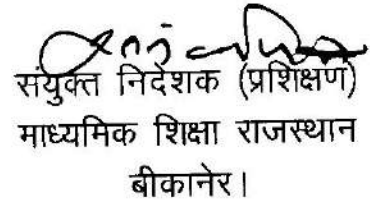 संयुक्त निदेशक (प्रशिक्षण)
माध्यमिक शिक्षा राजस्थान
बीकानेर।